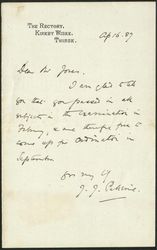 THE RECTORY,
KIRKBY WISKE,
THIRSK.
Ap 16. 87
Dear Mr Jones.
I am glad to tell
you that you passed in all
subjects in the Examination in
February, & are therefore free to
come up for Ordination in
September
yrs very tly
J. J.